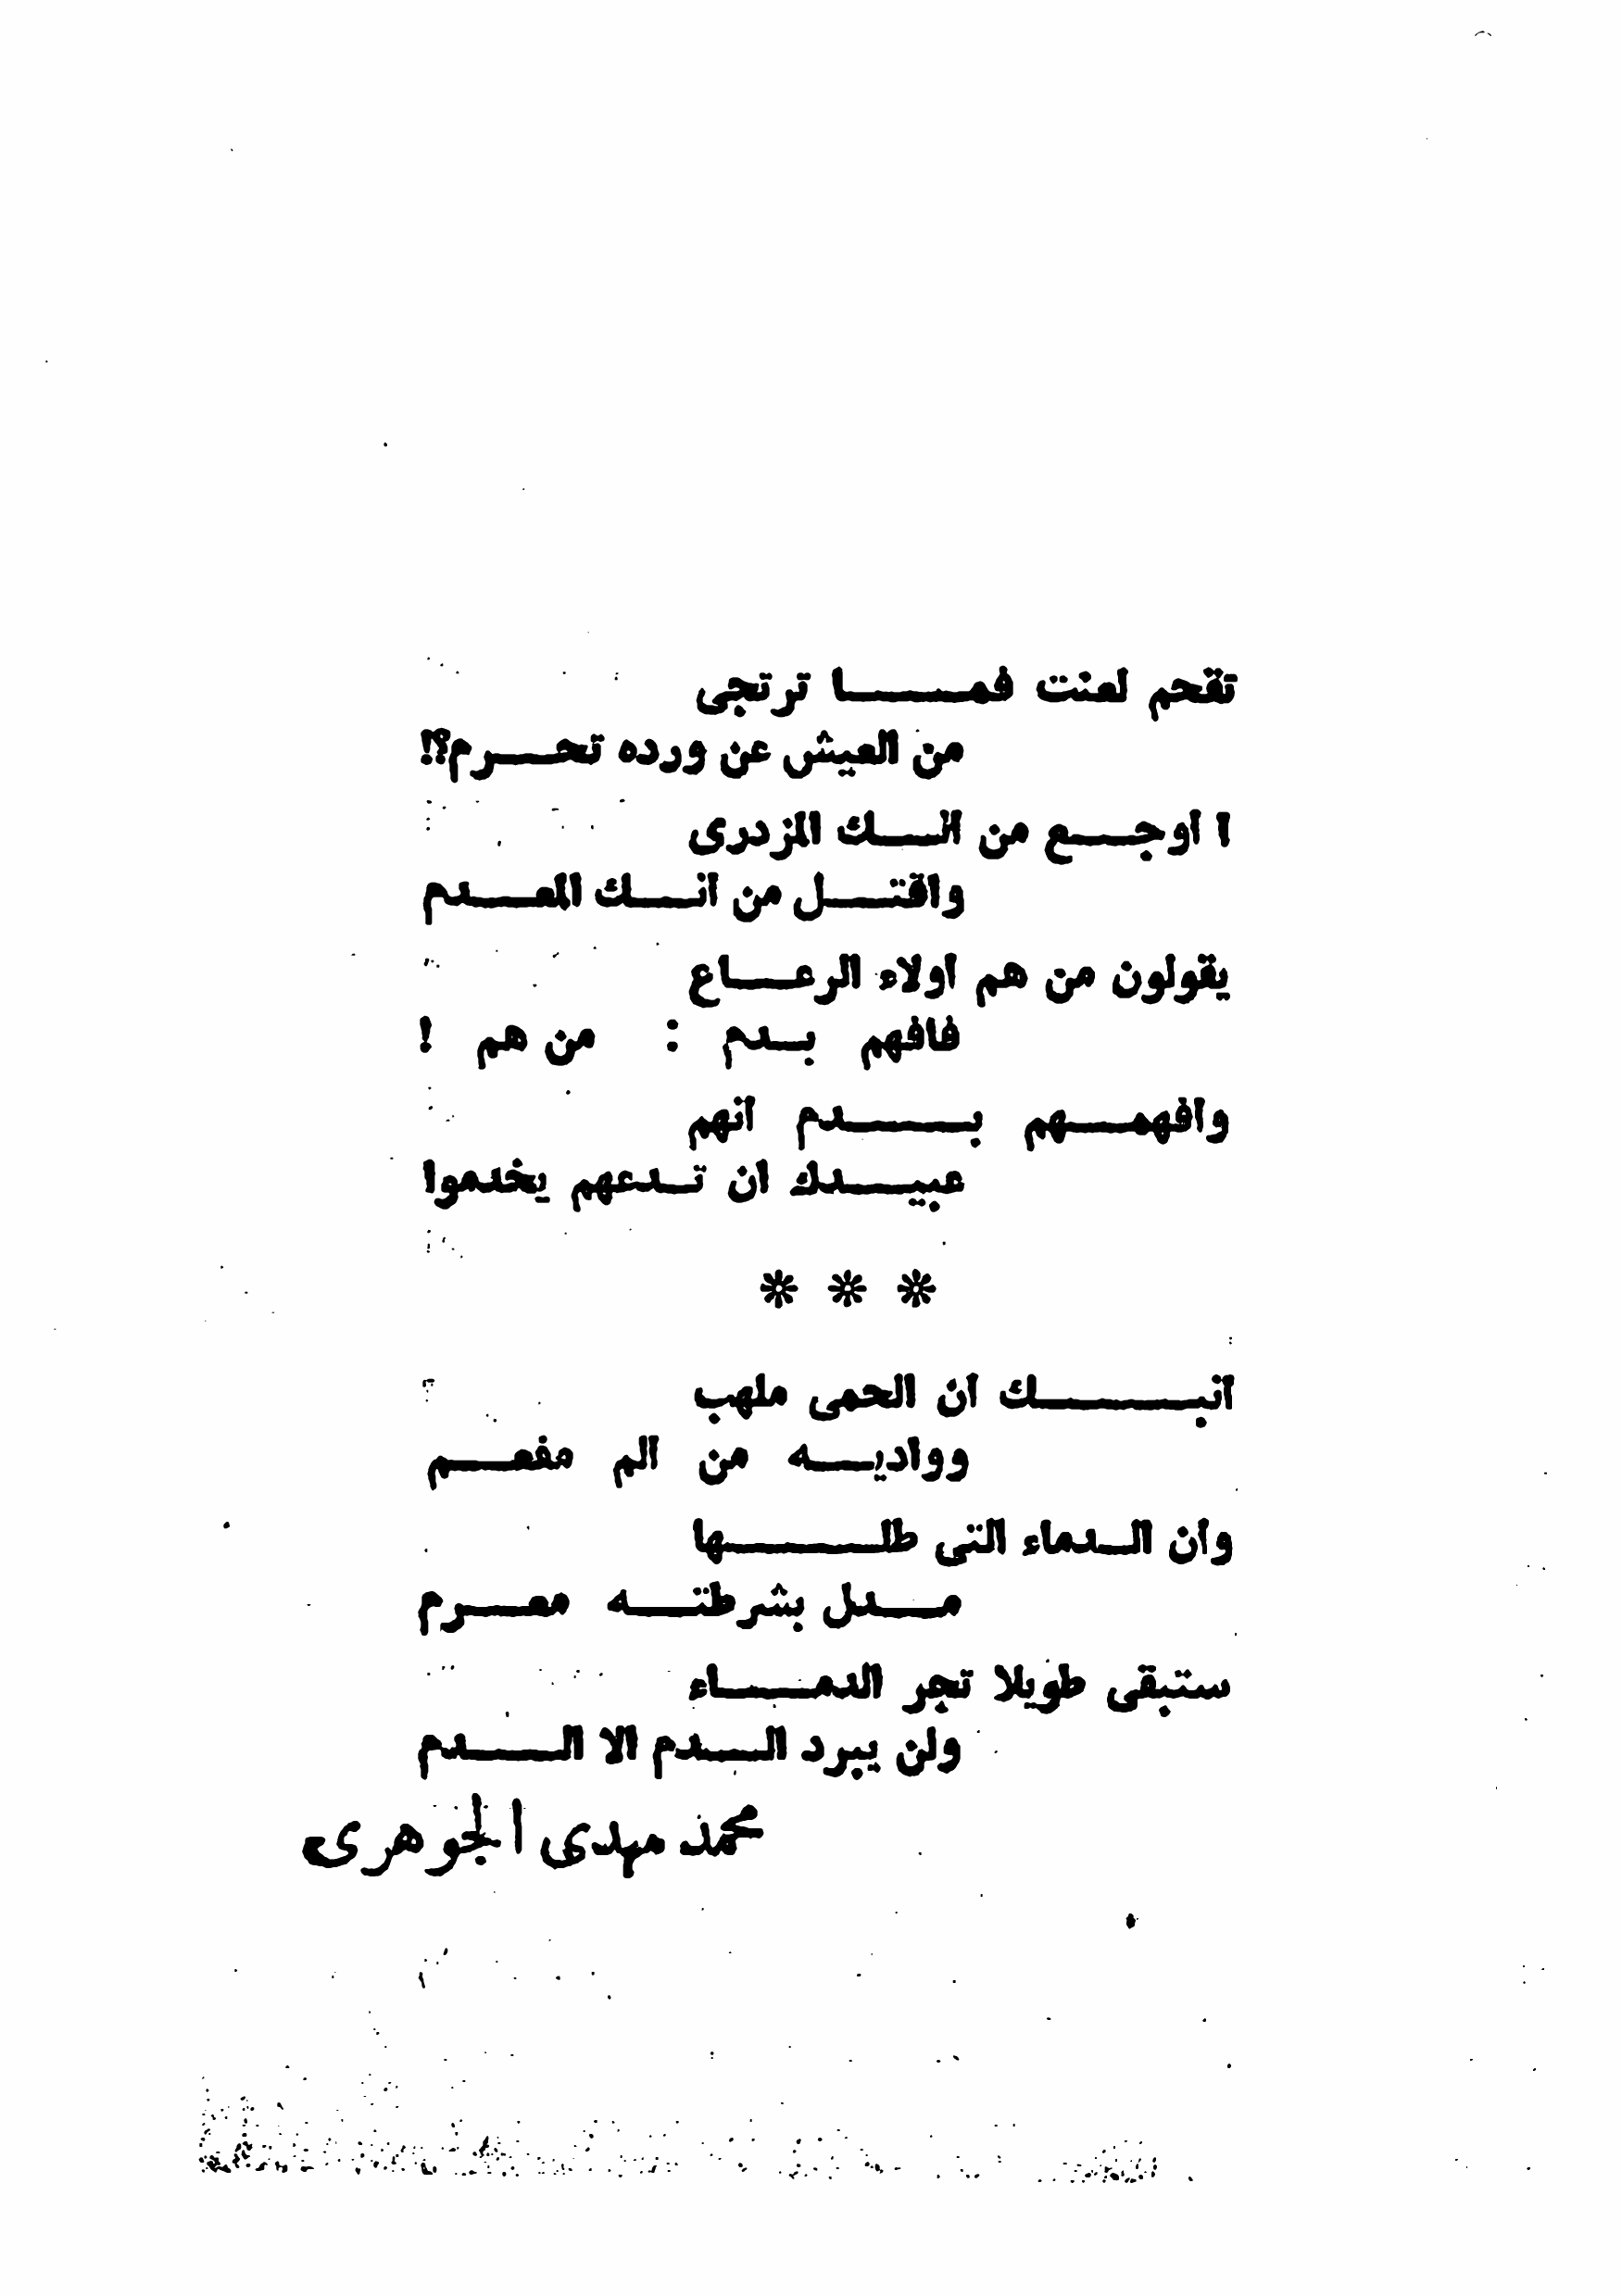 تقحم لعنت فمـــــا ترتجى
من العيش عن ورده تحـــرم؟!
ا اوجـــع من انـــك المزدرى
واقتـــل من انـــك المعـــدم
يقولون من هم اولاء الرعـــاع
فافهم بـــدم : من هم !
وافهمـــهم بـــــدم انهم
عبيـــدك ان تـــدعهم يخدموا
* * *
انبـــــك ان الحمى ملهب
وواديـــه من الم مفعـــم
وان الـــدماء التى طلـــــها
مـــدل بشرطتـــه معـــرم
ستبقى طويلا تجر الدمـــاء
ولن يبرد الـــدم الا الـــدم
محمد مهدى الجوهرى